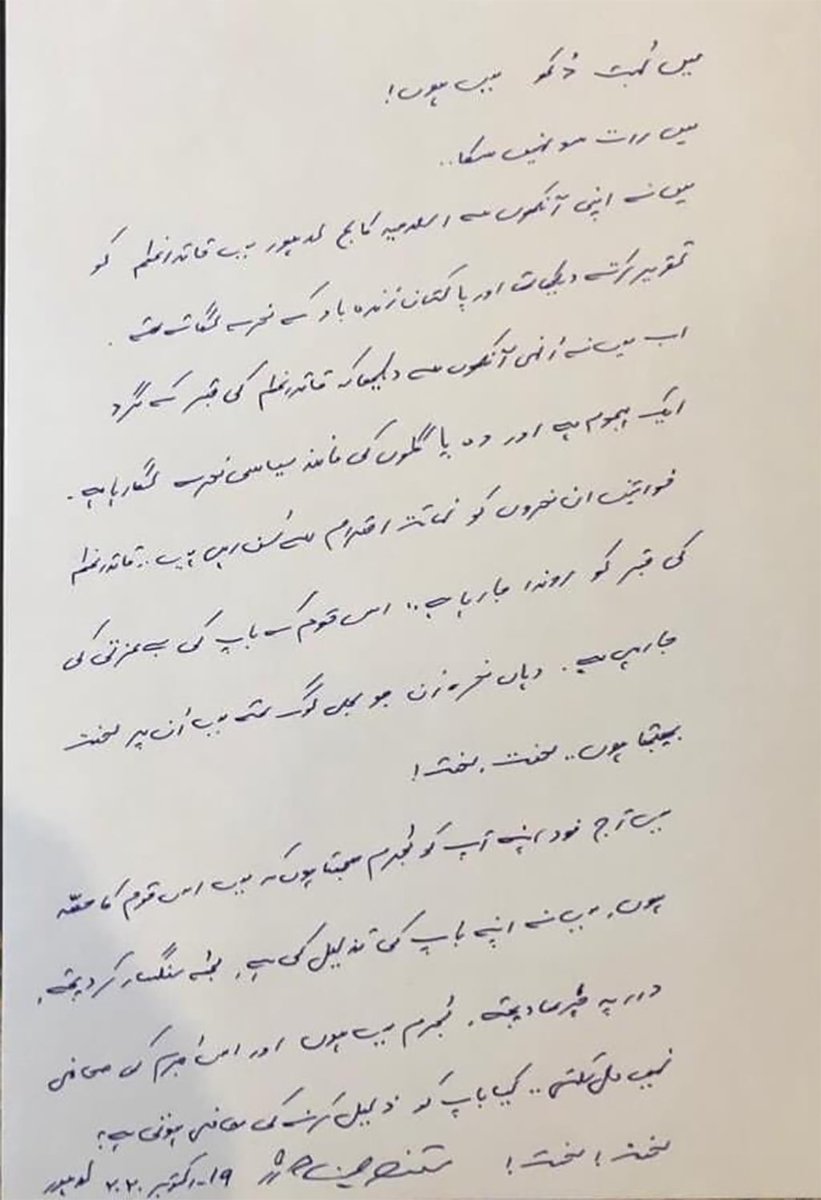 میں بُہت دُکھ میں ہوں!
میں رات سو نہیں سکا..
میں نے اپنی آنکھوں سے اسلامیہ کالج لاہور میں قائداعظم کو
تقریر کرتے دیکھا تھا اور پاکستان زندہ باد کے نعرے لگائے تھے.
اب میں نے اُنہی آنکھوں سے دیکھا کہ قائداعظم کی قبر کے گرد
ایک ہجوم ہے اور وہ پاگلوں کی مانند سیاسی نعرے لگا رہا ہے.
خواتین ان نعروں کو نہائت احترام سے سُن رہی ہیں.. قائداعظم
کی قبر کو روندا جا رہا ہے.. اس قوم کے باپ کی بے عزتی کی
جا رہی ہے. وہاں نعرہ زن جو بھی لوگ تھے میں اُن پر لعنت
بھیجتا ہوں.. لعنت. لعنت!
میں آج خود اپنے آپ کو مُجرم سمجھتا ہوں کہ میں اس قوم کا حصّہ
ہوں. میں نے اپنے باپ کی تذلیل کی ہے. مجھے سنگسار کر دیجئے.
دار پہ چڑھا دیجئے. مُجرم میں ہوں اور اس جُرم کی معافی
نہیں مل سکتی.. کیا باپ کو ذلیل کرنے کی معافی ہوتی ہے؟
لعنت! لعنت! مستنصر حسین تارڑ ۱۹-اکتوبر ۲۰۲۰ لاہور